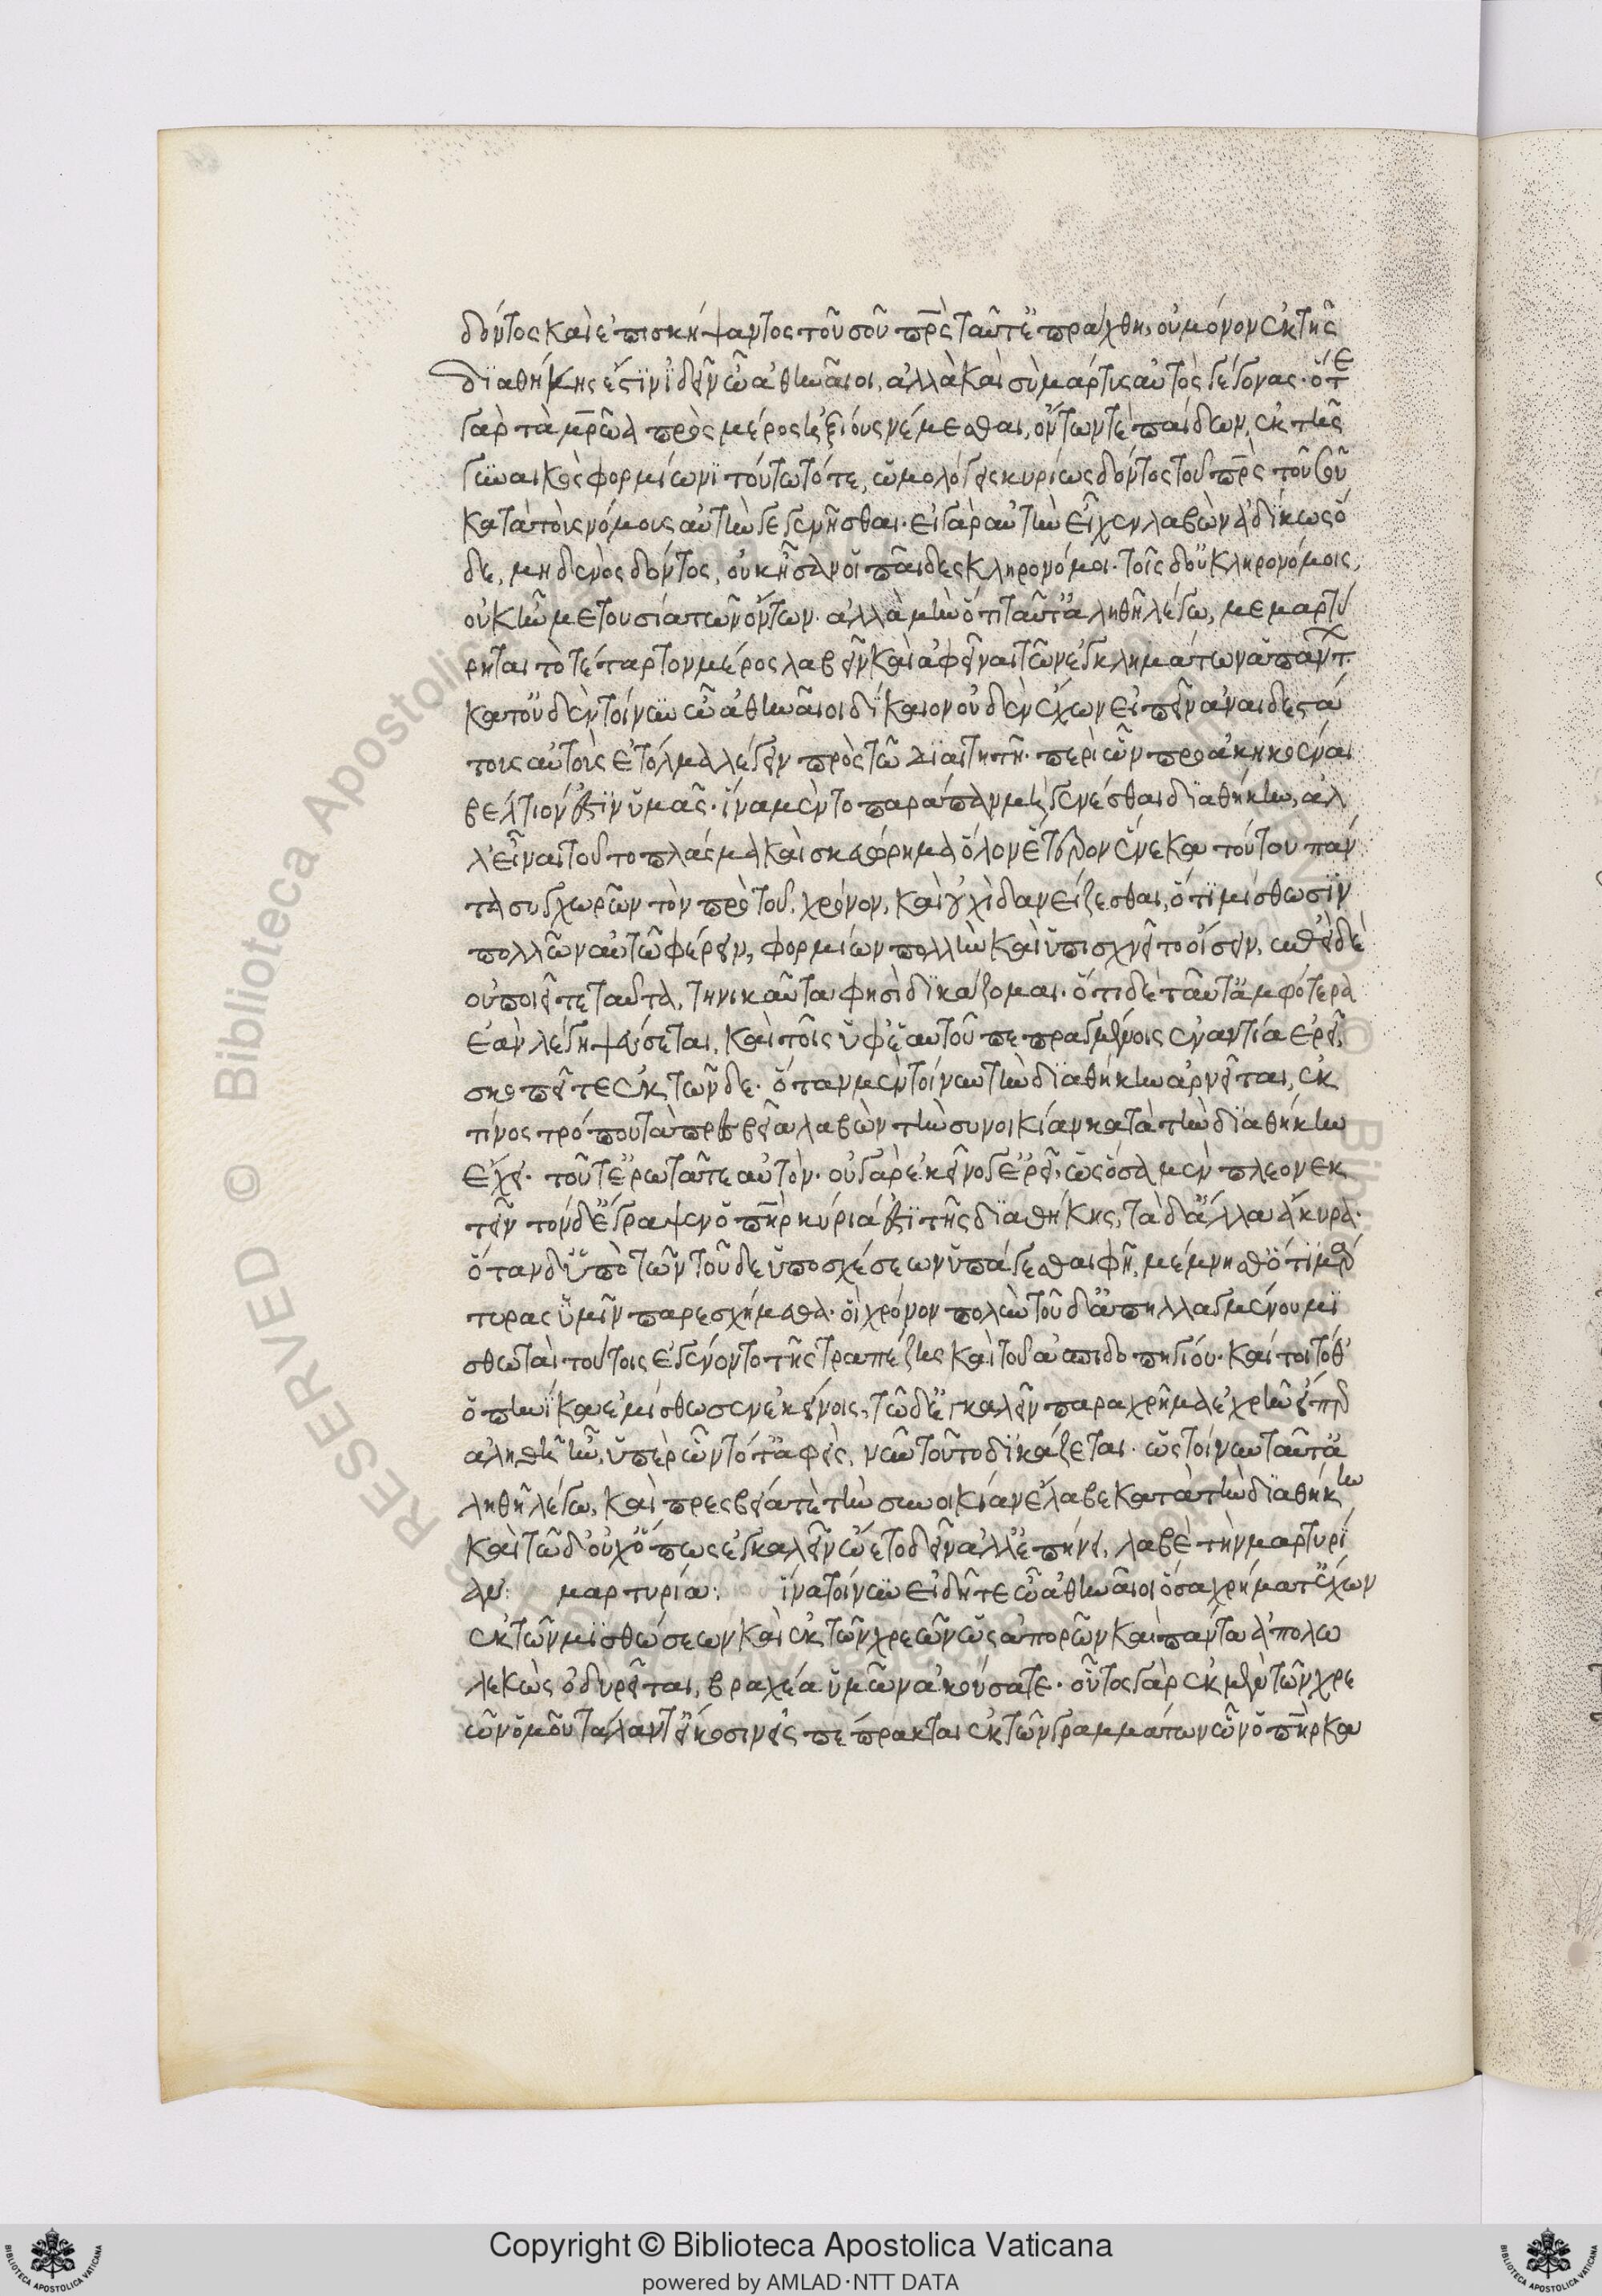 δόντος καὶ ἐπισκήψαντος τοῦ σοῦ πρς ταῦτ' ἐπράχθη, οὐ μόνον ἐκ τῆς
διαθήκης ἐστιν ἰδεῖν ὦ ἀθηναῖοι, ἀλλὰ καὶ σὺ μάρτυς αὐτὸς γέγονας· ὅτε
γὰρ τὰ μρῶα πρὸς μέρος ἠξίους νέμεσθαι, ὄντων τε παίδων, ἐκ τῆς
γυναικὸς φορμίωνι τούτω τότε, ὡμολόγεις κυρίως δόντος τοῦ πρς τοῦ σοῦ
κατὰ τοὺς νόμους αὐτὴν γεγενῆσθαι· εἰ γὰρ αὐτὴν εἶχεν λαβὼν ἀδίκως ὅ
δε, μηδενὸς δόντος, οὐκ ἦσαν οἱ παῖδες κληρονόμοι· τοῖς δ' οὐ κληρονόμοις,
οὐκ ἦν μετουσία τῶν ὄντων· ἀλλὰ μὴν ὅτι ταῦτ' ἀληθῆ λέγω, μεμαρτύ
ρηται τὸ τέταρτον μέρος λαβεῖν καὶ ἀφεῖναι τῶν ἐγκλημάτων ἁπάντ
κατ' οὐδὲν τοίνυν ὦ ἀθηναῖοι δίκαιον οὐδὲν ἔχων εἰπεῖν ἀναιδεστά
τους αὐτοὺς ἐτόλμα λέγειν πρὸς τῶ διαιτητῆ· περὶ ὧν προακηκοέναι
βέλτιόν ἐστιν ὑμᾶς· ἕνα μὲν το παράπαν μὴ γενέσθαι διαθήκην, ἀλ
λ' εἶναι τοῦτο πλάσμα καὶ σκευώρημα ὅλον· ἕτερον ἕνεκα τούτου πάν
τα συγχωρῶν τὸν πρὸ τοῦ χρόνον, καὶ οὐχὶ δανείζεσθαι, ὅτι μίσθωσιν
πολλῶν αὐτῶ φέρειν, φορμίων πολλὴν καὶ ὑπισχνεῖτο οἴσειν, ἐπειδὲ
οὐ ποιεῖτε ταῦτα, τηνικαῦτα φησὶ δικάζομαι· ὅτι δε ταῦτ' ἀμφότερα
ἐὰν λέγη ψεύσεται, καὶ τοῖς ὑφ' ἑαυτοῦ πεπραγμένοις ἐναντία ἐρεῖ,
σκοπεῖτε ἐκ τῶνδε· ὅταν μὲν τοίνυν τὴν διαθήκην ἀρνεῖται, ἐκ
τίνος τρόπου τὰ πρεσβεῖα λαβὼν τὴν συνοικίαν κατὰ τὴν διαθήκην
ἔχει· τοῦτ' ἐρωτᾶτε αὐτὸν· οὐ γὰρ ἐκεῖνο γ' ἐρεῖ, ὡς ὅσα μὲν πλεονεκ
τεῖν τόνδ' ἔγραψεν ὁ πηρ κύριά ἐστι τῆς διαθήκης, τὰ δ' ἄλλα ἄκυρα·
ὅταν δ' ὑπὸ τῶν τοῦδε ὑποσχέσεων ὑπάγεσθαι φῆ, μέμνησθ' ὅτι μαρ
τυρας ὑμῖν παρεσχήμεθα· οἳ χρόνον πολὺν τοῦδ' ἀπηλλαγμένου μι
σθωταὶ τούτοις ἐγένοντο τῆς τραπέζης καὶ τοῦ ἀσπιδοπηγίου· καίτοι τόθ'
ὁπηνίκα ἐμίσθωσεν ἐκείνοις, τῶδ' ἐγκαλεῖν παραχρῆμα ἐχρῆν εἴπερ
ἀληθῆ ἦν, ὑπὲρ ὧν τότ' ἀφεὶς, νῦν τοῦτο δικάζεται· ὡς τοίνυν ταῦτ' ἀ
ληθῆ λέγω, καὶ πρεσβεῖά τε τὴν συνοικίαν ἔλαβε κατὰ τὴν διαθήκην
καὶ τῶδ' οὐχ ὅπως ἐγκαλεῖν ὤετο δεῖν ἀλλ' ἐπήνει, λαβὲ τὴν μαρτυρί
αν: μαρτυρία: ἵνα τοίνυν εἰδῆτε ὦ ἀθηναῖοι ὅσα χρήματ' ἔχων
ἐκ τῶν μισθώσεων καὶ ἐκ τῶν χρεῶν ὡς ἀπορῶν καὶ πάντα ἀπολω
λεκὼς ὀδυρεῖται, βραχέα ὑμῶν ἀκούσατε· οὗτος γὰρ ἐκ μὲν τῶν χρε
ῶν ὁμοῦ τάλαντ' εἴκοσιν εἰς πέπρακται ἐκ τῶν γραμμάτων ὧν ὁ πηρ κα